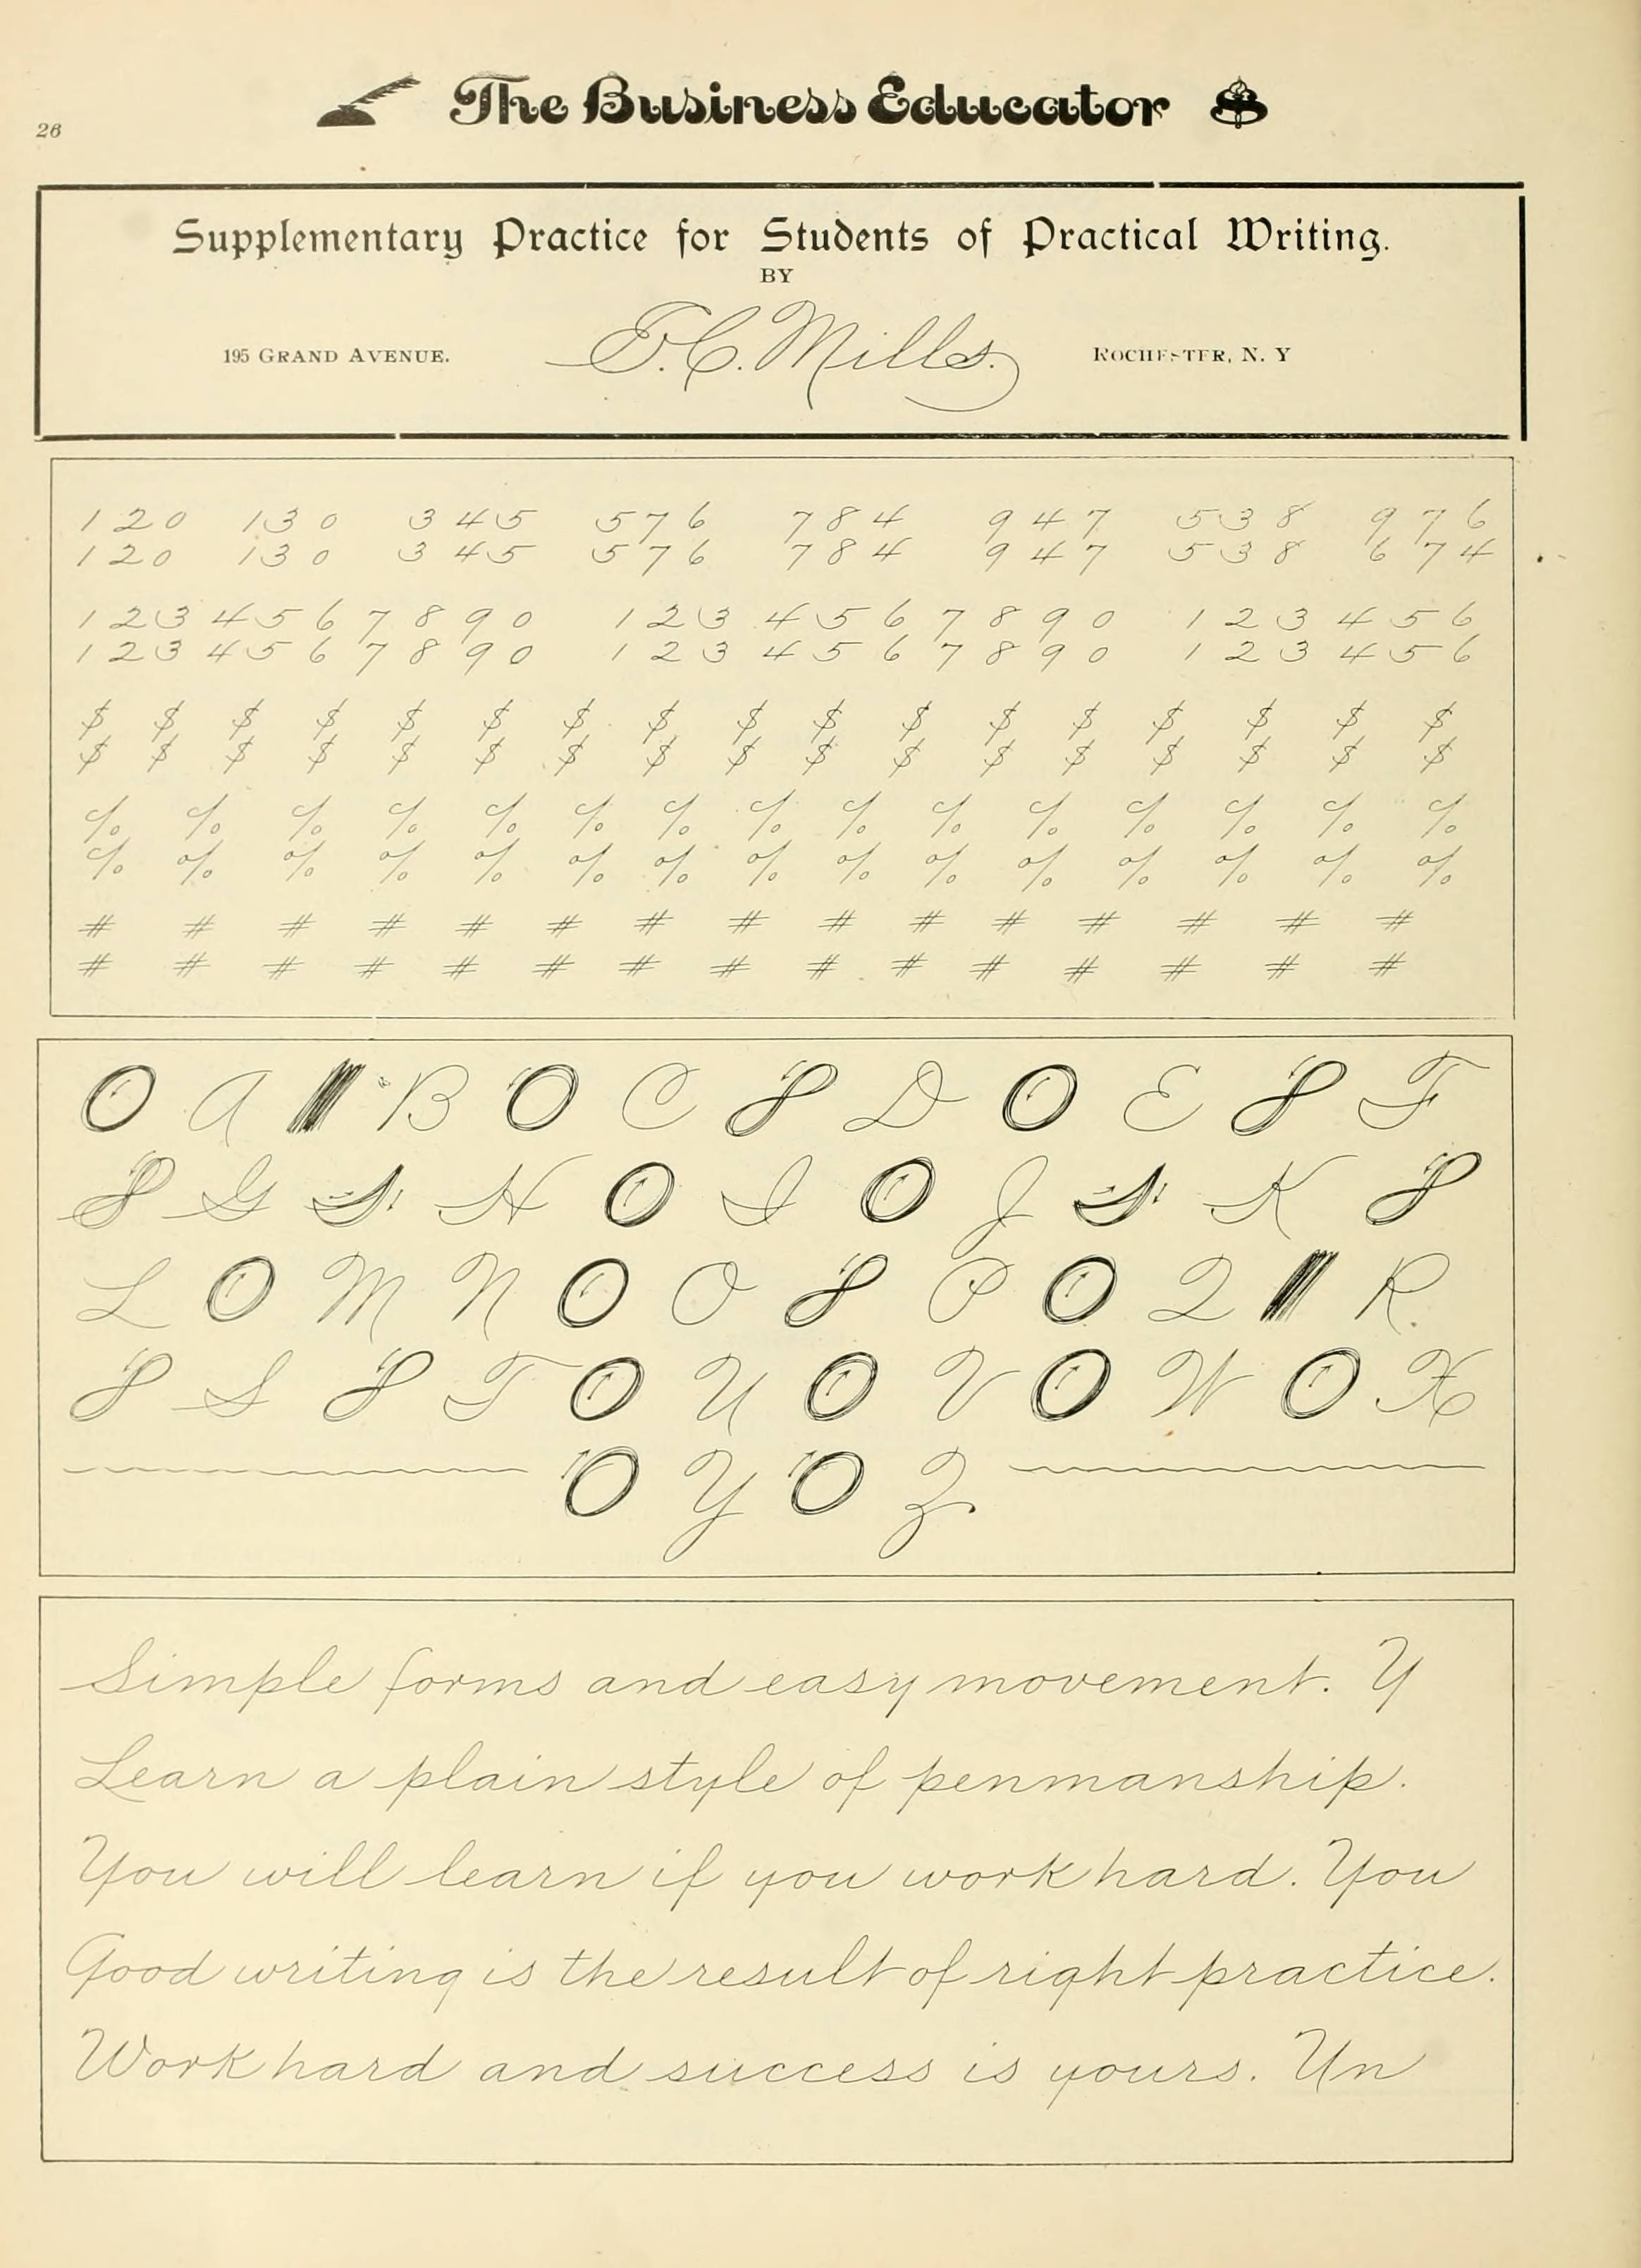 26
The Business Educator
Supplementary Practice for Students of Practical Writing.
BY
195 GRAND AVENUE. E. C. Mills. ROCHESTER, N. Y
120 130 345 576 784 947 538 976
120 130 345 576 784 947 538 674
1234567890 1234567890 123456
1234567890 1234567890 123456
$ $ $ $ $ $ $ $ $ $ $ $ $ $ $ $ $
$ $ $ $ $ $ $ $ $ $ $ $ $ $ $ $ $
% % % % % % % % % % % % % % %
% % % % % % % % % % % % % % %
# # # # # # # # # # # # # # #
# # # # # # # # # # # # # # #
A B C D E F
G H I J K
L M N O P Q R
S T U V W X
Y Z
Simple forms and easy movement. Y
Learn a plain style of penmanship.
You will learn if you work hard. You
Good writing is the result of right practice.
Work hard and success is yours. Un